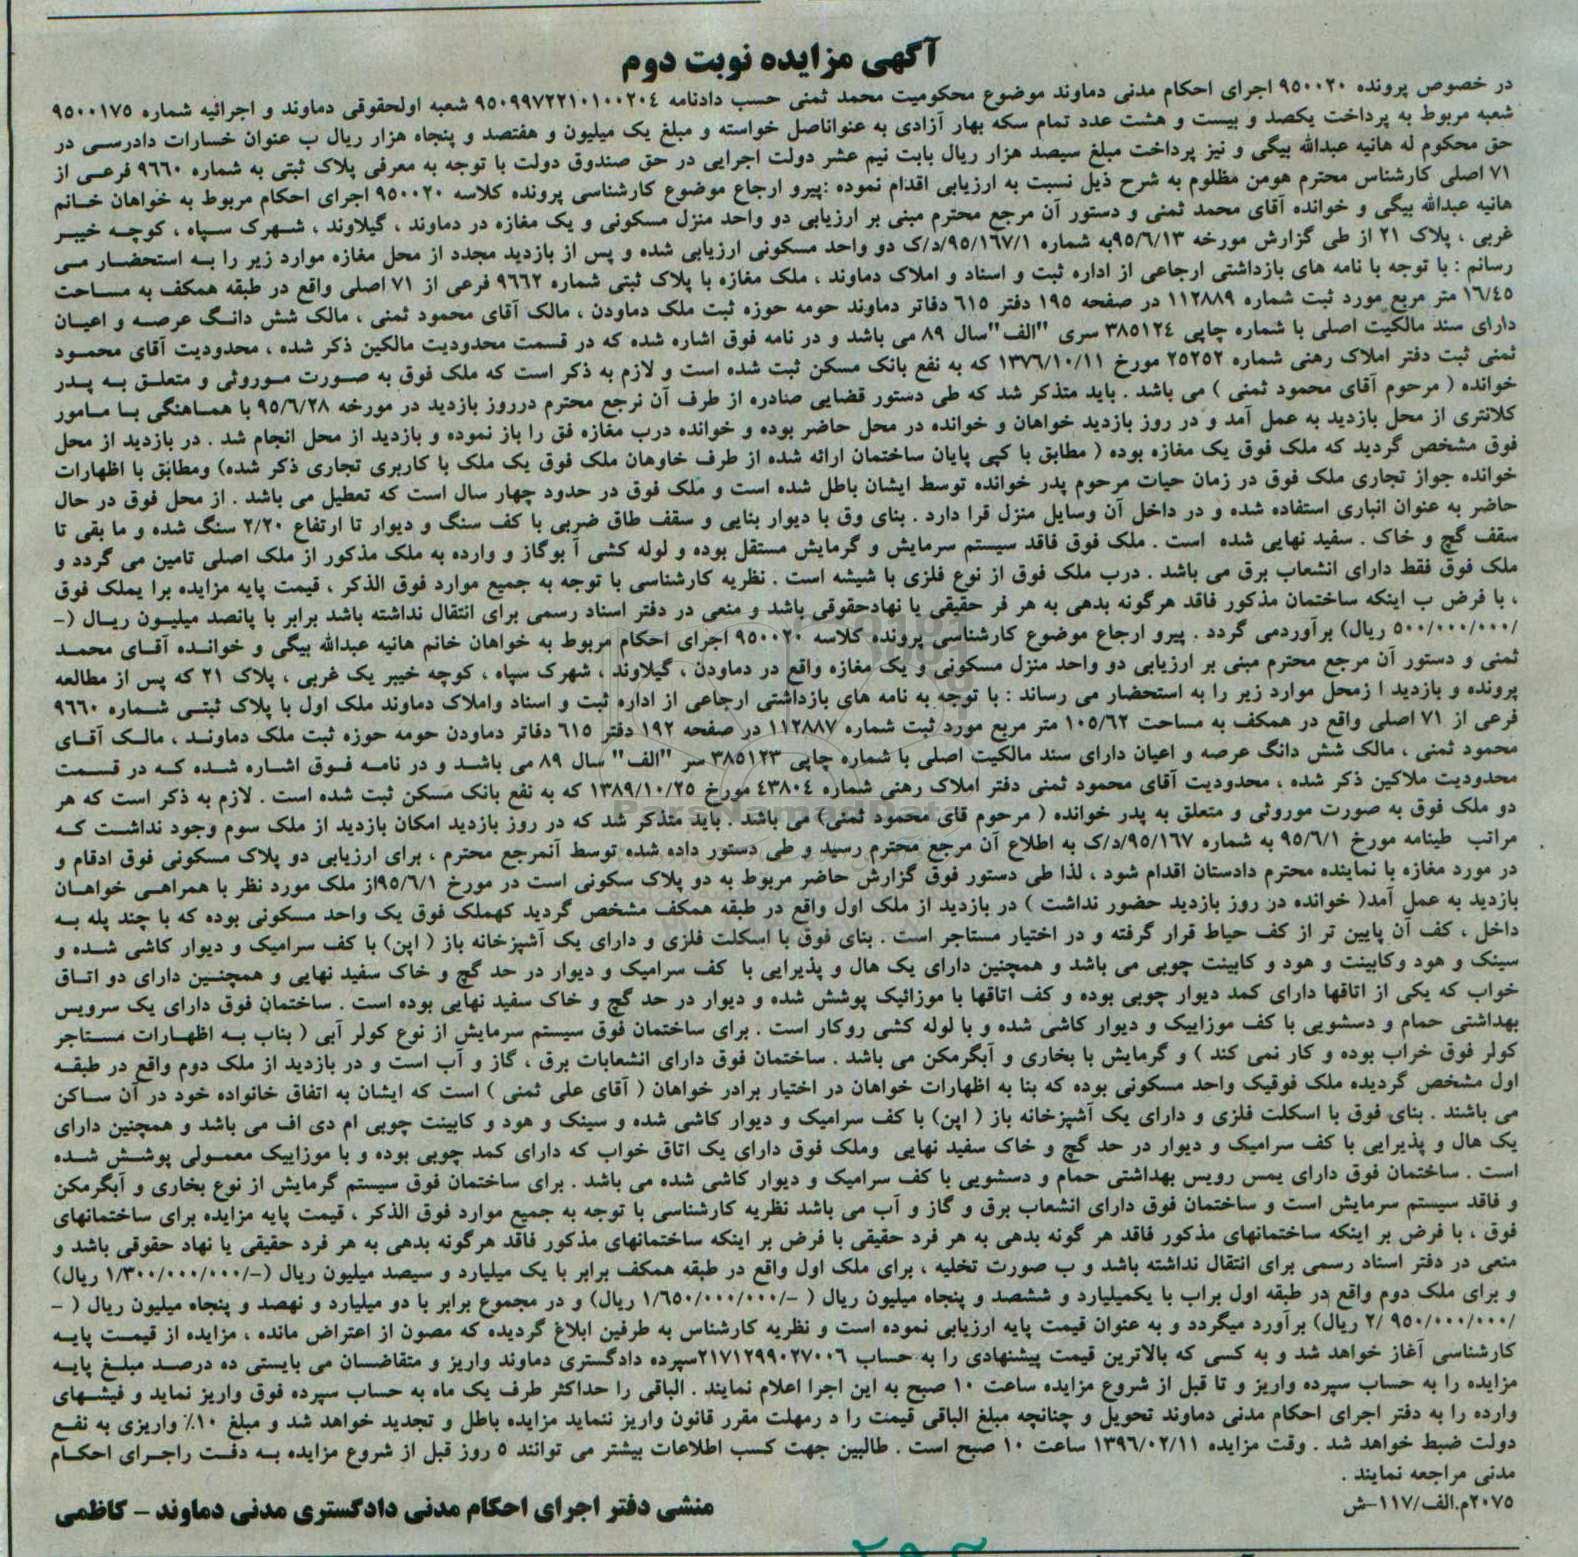 آگهی مزایده نوبت دوم
در خصوص پرونده ۹۵۰۰۲۰ اجرای احکام مدنی دماوند موضوع محکومیت محمد ثمنی حسب دادنامه ۹۵۰۹۹۷۲۲۱۰۱۰۰۲۰۴ شعبه اولحقوقی دماوند و اجرائیه شماره ۹۵۰۰۱۷۵
شعبه مربوط به پرداخت یکصد و بیست و هشت عدد تمام سکه بهار آزادی به عنواناصل خواسته و مبلغ یک میلیون و هفتصد و پنجاه هزار ریال ب عنوان خسارات دادرسی در
حق محکوم له هانیه عبدالله بیگی و نیز پرداخت مبلغ سیصد هزار ریال بابت نیم عشر دولت اجرایی در حق صندوق دولت با توجه به معرفی پلاک ثبتی به شماره ۹۶۶۰ فرعی از
۷۱ اصلی کارشناس محترم هومن مظلوم به شرح ذیل نسبت به ارزیابی اقدام نموده :پیرو ارجاع موضوع کارشناسی پرونده کلاسه ۹۵۰۰۲۰ اجرای احکام مربوط به خواهان خانم
هانیه عبدالله بیگی و خوانده آقای محمد ثمنی و دستور آن مرجع محترم مبنی بر ارزیابی دو واحد منزل مسکونی و یک مغازه در دماوند ، گیلاوند ، شهرک سپاه ، کوچه خیبر
غربی ، پلاک ۲۱ از طی گزارش مورخه ۹۵/۶/۱۳به شماره ۹۵/۱۶۷/۱/د/ک دو واحد مسکونی ارزیابی شده و پس از بازدید مجدد از محل مغازه موارد زیر را به استحضار می
رسانم : با توجه با نامه های بازداشتی ارجاعی از اداره ثبت و اسناد و املاک دماوند ، ملک مغازه با پلاک ثبتی شماره ۹۶۶۲ فرعی از ۷۱ اصلی واقع در طبقه همکف به مساحت
۱۶/۴۵ متر مربع مورد ثبت شماره ۱۱۲۸۸۹ در صفحه ۱۹۵ دفتر ۶۱۵ دفاتر دماوند حومه حوزه ثبت ملک دماودن ، مالک آقای محمود ثمنی ، مالک شش دانگ عرصه و اعیان
دارای سند مالکیت اصلی با شماره چاپی ۳۸۵۱۲۴ سری "الف"سال ۸۹ می باشد و در نامه فوق اشاره شده که در قسمت محدودیت مالکین ذکر شده ، محدودیت آقای محمود
ثمنی ثبت دفتر املاک رهنی شماره ۲۵۲۵۲ مورخ ۱۳۷۶/۱۰/۱۱ که به نفع بانک مسکن ثبت شده است و لازم به ذکر است که ملک فوق به صورت موروثی و متعلق به پدر
خوانده ( مرحوم آقای محمود ثمنی ) می باشد . باید متذکر شد که طی دستور قضایی صادره از طرف آن نرجع محترم درروز بازدید در مورخه ۹۵/۶/۲۸ با هماهنگی با مامور
کلانتری از محل بازدید به عمل آمد و در روز بازدید خواهان و خوانده در محل حاضر بوده و خوانده درب مغازه فق را باز نموده و بازدید از محل انجام شد . در بازدید از محل
فوق مشخص گردید که ملک فوق یک مغازه بوده ( مطابق با کپی پایان ساختمان ارائه شده از طرف خاوهان ملک فوق یک ملک با کاربری تجاری ذکر شده) ومطابق با اظهارات
خوانده جواز تجاری ملک فوق در زمان حیات مرحوم پدر خوانده توسط ایشان باطل شده است و ملک فوق در حدود چهار سال است که تعطیل می باشد . از محل فوق در حال
حاضر به عنوان انباری استفاده شده و در داخل آن وسایل منزل قرا دارد . بنای وق با دیوار بنایی و سقف طاق ضربی با کف سنگ و دیوار تا ارتفاع ۲/۲۰ سنگ شده و ما بقی تا
سقف گچ و خاک . سفید نهایی شده است . ملک فوق فاقد سیستم سرمایش و گرمایش مستقل بوده و لوله کشی آ بوگاز و وارده به ملک مذکور از ملک اصلی تامین می گردد و
ملک فوق فقط دارای انشعاب برق می باشد . درب ملک فوق از نوع فلزی با شیشه است . نظریه کارشناسی با توجه به جمیع موارد فوق الذکر ، قیمت پایه مزایده برا یملک فوق
، با فرض ب اینکه ساختمان مذکور فاقد هرگونه بدهی به هر فر حقیقی یا نهادحقوقی باشد و منعی در دفتر اسناد رسمی برای انتقال نداشته باشد برابر با پانصد میلیون ریال (-
/۵۰۰/۰۰۰/۰۰۰ ریال) برآوردمی گردد . پیرو ارجاع موضوع کارشناسی پرونده کلاسه ۹۵۰۰۲۰ اجرای احکام مربوط به خواهان خانم هانیه عبدالله بیگی و خوانده آقای محمد
ثمنی و دستور آن مرجع محترم مبنی بر ارزیابی دو واحد منزل مسکونی و یک مغازه واقع در دماودن ، گیلاوند ، شهرک سپاه ، کوچه خیبر یک غربی ، پلاک ۲۱ که پس از مطالعه
پرونده و بازدید ا زمحل موارد زیر را به استحضار می رساند : با توجه به نامه های بازداشتی ارجاعی از اداره ثبت و اسناد واملاک دماوند ملک اول با پلاک ثبتی شماره ۹۶۶۰
فرعی از ۷۱ اصلی واقع در همکف به مساحت ۱۰۵/۶۲ متر مربع مورد ثبت شماره ۱۱۲۸۸۷ در صفحه ۱۹۲ دفتر ۶۱۵ دفاتر دماودن حومه حوزه ثبت ملک دماوند ، مالک آقای
محمود ثمنی ، مالک شش دانگ عرصه و اعیان دارای سند مالکیت اصلی با شماره چاپی ۳۸۵۱۲۳ سر "الف" سال ۸۹ می باشد و در نامه فوق اشاره شده که در قسمت
محدودیت ملاکین ذکر شده ، محدودیت آقای محمود ثمنی دفتر املاک رهنی شماره ۴۳۸۰۴ مورخ ۱۳۸۹/۱۰/۲۵ که به نفع بانک مسکن ثبت شده است . لازم به ذکر است که هر
دو ملک فوق به صورت موروثی و متعلق به پدر خوانده ( مرحوم قای محمود ثمنی) می باشد . باید متذکر شد که در روز بازدید امکان بازدید از ملک سوم وجود نداشت که
مراتب طینامه مورخ ۹۵/۶/۱ به شماره ۹۵/۱۶۷/د/ک به اطلاع آن مرجع محترم رسید و طی دستور داده شده توسط آنمرجع محترم ، برای ارزیابی دو پلاک مسکونی فوق ادقام و
در مورد مغازه با نماینده محترم دادستان اقدام شود ، لذا طی دستور فوق گزارش حاضر مربوط به دو پلاک سکونی است در مورخ ۹۵/۶/۱از ملک مورد نظر با همراهی خواهان
بازدید به عمل آمد( خوانده در روز بازدید حضور نداشت ) در بازدید از ملک اول واقع در طبقه همکف مشخص گردید کهملک فوق یک واحد مسکونی بوده که با چند پله به
داخل ، کف آن پایین تر از کف حیاط قرار گرفته و در اختیار مستاجر است . بنای فوق با اسکلت فلزی و دارای یک آشپزخانه باز ( اپن) با کف سرامیک و دیوار کاشی شده و
سینک و هود وکابینت و هود و کابینت چوبی می باشد و همچنین دارای یک هال و پذیرایی با کف سرامیک و دیوار در حد گچ و خاک سفید نهایی و همچنین دارای دو اتاق
خواب که یکی از اتاقها دارای کمد دیوار چوبی بوده و کف اتاقها با موزائیک پوشش شده و دیوار در حد گچ و خاک سفید نهایی بوده است . ساختمان فوق دارای یک سرویس
بهداشتی حمام و دسشویی با کف موزاییک و دیوار کاشی شده و با لوله کشی روکار است . برای ساختمان فوق سیستم سرمایش از نوع کولر آبی ( بناب به اظهارات مستاجر
کولر فوق خراب بوده و کار نمی کند ) و گرمایش با بخاری و آبگرمکن می باشد . ساختمان فوق دارای انشعابات برق ، گاز و آب است و در بازدید از ملک دوم واقع در طبقه
اول مشخص گردیده ملک فوقیک واحد مسکونی بوده که بنا به اظهارات خواهان در اختیار برادر خواهان ( آقای علی ثمنی ) است که ایشان به اتفاق خانواده خود در آن ساکن
می باشند . بنای فوق با اسکلت فلزی و دارای یک آشپزخانه باز ( اپن) با کف سرامیک و دیوار کاشی شده و سینک و هود و کابینت چوبی ام دی اف می باشد و همچنین دارای
یک هال و پذیرایی با کف سرامیک و دیوار در حد گچ و خاک سفید نهایی وملک فوق دارای یک اتاق خواب که دارای کمد چوبی بوده و با موزاییک معمولی پوشش شده
است . ساختمان فوق دارای یمس رویس بهداشتی حمام و دسشویی با کف سرامیک و دیوار کاشی شده می باشد . برای ساختمان فوق سیستم گرمایش از نوع بخاری و آبگرمکن
و فاقد سیستم سرمایش است و ساختمان فوق دارای انشعاب برق و گاز و آب می باشد نظریه کارشناسی با توجه به جمیع موارد فوق الذکر ، قیمت پایه مزایده برای ساختمانهای
فوق ، با فرض بر اینکه ساختمانهای مذکور فاقد هر گونه بدهی به هر فرد حقیقی با فرض بر اینکه ساختمانهای مذکور فاقد هرگونه بدهی به هر فرد حقیقی یا نهاد حقوقی باشد و
منعی در دفتر اسناد رسمی برای انتقال نداشته باشد و ب صورت تخلیه ، برای ملک اول واقع در طبقه همکف برابر با یک میلیارد و سیصد میلیون ریال (-/۱/۳۰۰/۰۰۰/۰۰۰ ریال)
و برای ملک دوم واقع در طبقه اول براب با یکمیلیارد و ششصد و پنجاه میلیون ریال ( -/۱/۶۵۰/۰۰۰/۰۰۰ ریال) و در مجموع برابر با دو میلیارد و نهصد و پنجاه میلیون ریال ( -
/۲/ ۹۵۰/۰۰۰/۰۰۰ ریال) برآورد میگردد و به عنوان قیمت پایه ارزیابی نموده است و نظریه کارشناس به طرفین ابلاغ گردیده که مصون از اعتراض مانده ، مزایده از قیمت پایه
کارشناسی آغاز خواهد شد و به کسی که بالاترین قیمت پیشنهادی را به حساب ۲۱۷۱۲۹۹۰۲۷۰۰۶سپرده دادگستری دماوند واریز و متقاضان می بایستی ده درصد مبلغ پایه
مزایده را به حساب سپرده واریز و تا قبل از شروع مزایده ساعت ۱۰ صبح به این اجرا اعلام نمایند . الباقی را حداکثر ظرف یک ماه به حساب سپرده فوق واریز نماید و فیشهای
وارده را به دفتر اجرای احکام مدنی دماوند تحویل و چنانچه مبلغ الباقی قیمت را د رمهلت مقرر قانون واریز ننماید مزایده باطل و تجدید خواهد شد و مبلغ ۱۰٪ واریزی به نفع
دولت ضبط خواهد شد . وقت مزایده ۱۳۹۶/۰۲/۱۱ ساعت ۱۰ صبح است . طالبین جهت کسب اطلاعات بیشتر می توانند ۵ روز قبل از شروع مزایده به دفت راجرای احکام
مدنی مراجعه نمایند .
۲۰۷۵م.الف/۱۱۷-ش
منشی دفتر اجرای احکام مدنی دادگستری مدنی دماوند – کاظمی
ParsNamadData